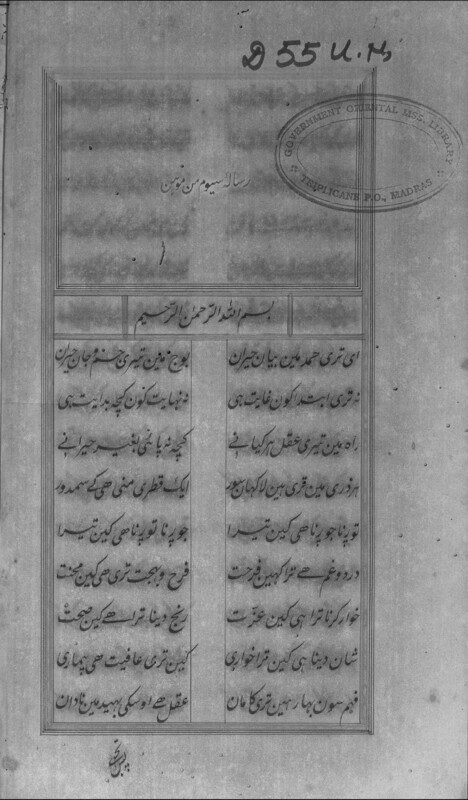 D 55 U.M.
GOVERNMENT ORIENTAL MSS. LIBRARY
TRIPLICANE P.O., MADRAS
رسالہ سیوم من
بسم اللہ الرحمن الرحیم
ای تری حمد مین بیان حیران بوج مین تیری جان حیران
نہ تری ابتدا کون غایت ہی نہ نہایت کون کچہ بدایت ہی
راہ مین تیری عقل ہر کیانے کچہ نہ پائی بغیر حیرانے
ہر ذری مین تری ہین لاکہان سور ایک قطری منی ھی کے سمدور
تو پنا جو پنا ھی کین تیرا جو پنا تو پنا ھی کین تیرا
درد و غم ھے ترا کہین فرحت فرح و بہجت تری ھی کین محنت
خوار کرنا ترا ہی کین عزت رنج دینا ترا ھے کین صحت
شان دینا ہی کین ترا خواری کین تری عافیت ھی بیماری
فہم سون بہار ہین تری کامان عقل ھے اوسکی بہید مین نادان